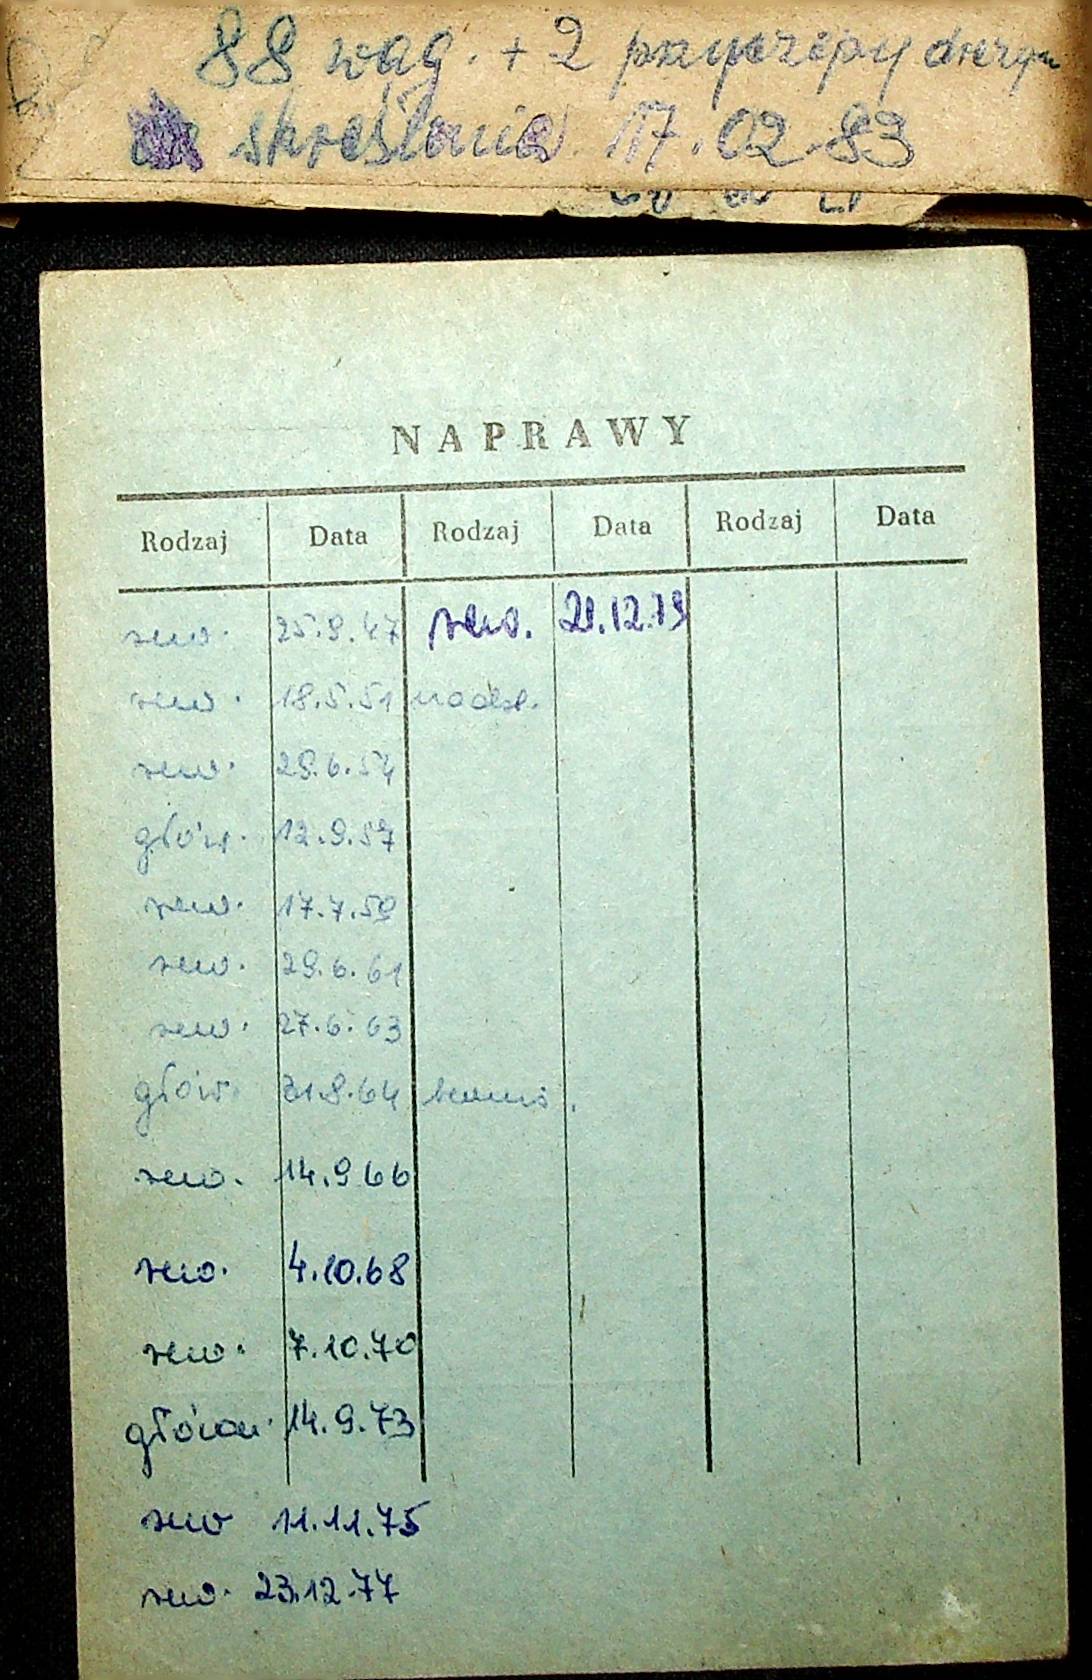 88 wag. + 2 przyczepy drezyn
skreślenia 17.02.83
NAPRAWY
Rodzaj Data Rodzaj Data Rodzaj Data
rew. 25.9.47 rew. 21.12.79
rew. 18.5.51 nadzl.
rew. 29.6.54
głów. 12.9.57
rew. 17.7.59
rew. 29.6.61
rew. 27.6.63
głów. 31.8.64
rew. 14.9.66
rew. 4.10.68
rew. 7.10.70
główn. 14.9.73
rew 11.11.75
rew. 23.12.77